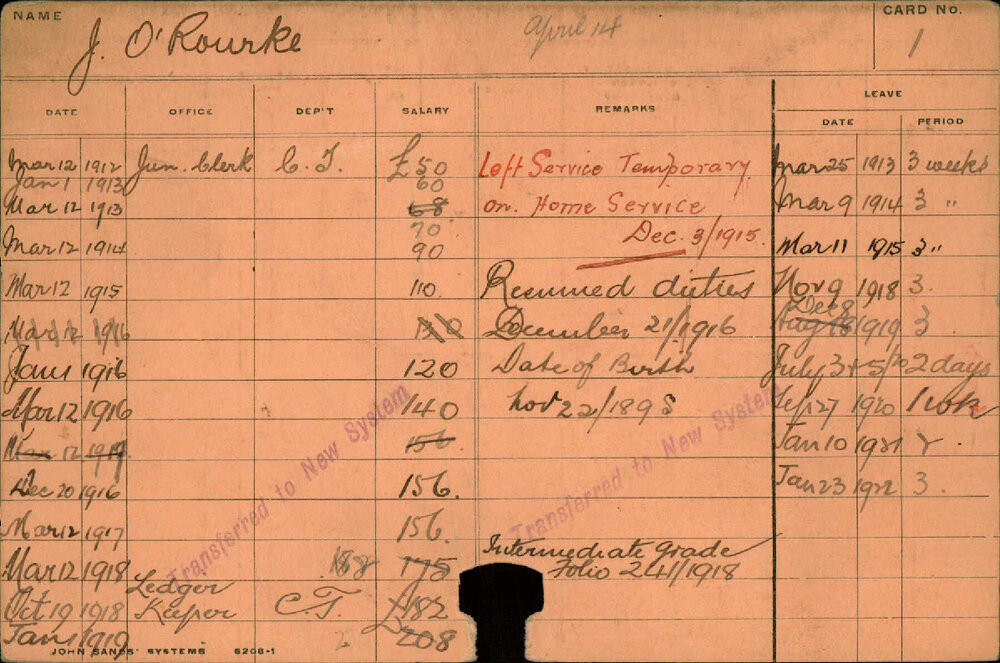 NAME J. O'Rourke April 14 CARD No. 1
LEAVE
DATE OFFICE DEP'T SALARY REMARKS DATE PERIOD
Mar 12 1912 Jun. Clerk C. T. £50 Left Service Temporary Mar 25 1913 3 weeks
Jan 1 1913 60
Mar 12 1913 68 on Home Service Mar 9 1914 3 "
70 Dec. 3/1915.
Mar 12 1914 90 Mar 11 1915 3 "
Mar 12 1915 110 Resumed duties Nov 9 1918 3.
Dec 8
Mar 12 1916 December 21/1916 Aug 18 1919 3
Jan 1 1916 120 Date of Birth July 3+5/20 2 days
Mar 12 1916 140 Nov 22/1895 Sep 27 1920 1 wk
Mar 12 1917 156 Jan 10 1921
Dec 20 1916 156. Jan 23 1922 3.
Mar 12 1917 156.
Transferred to New System
Transferred to New System
Intermediate Grade
Mar 12 1918 188 175 Folio 241/1918
Ledger
Oct 19 1918 Keeper C T. £182
Jan 1 1919 2 208
JOHN SANDS' SYSTEMS 6208-1